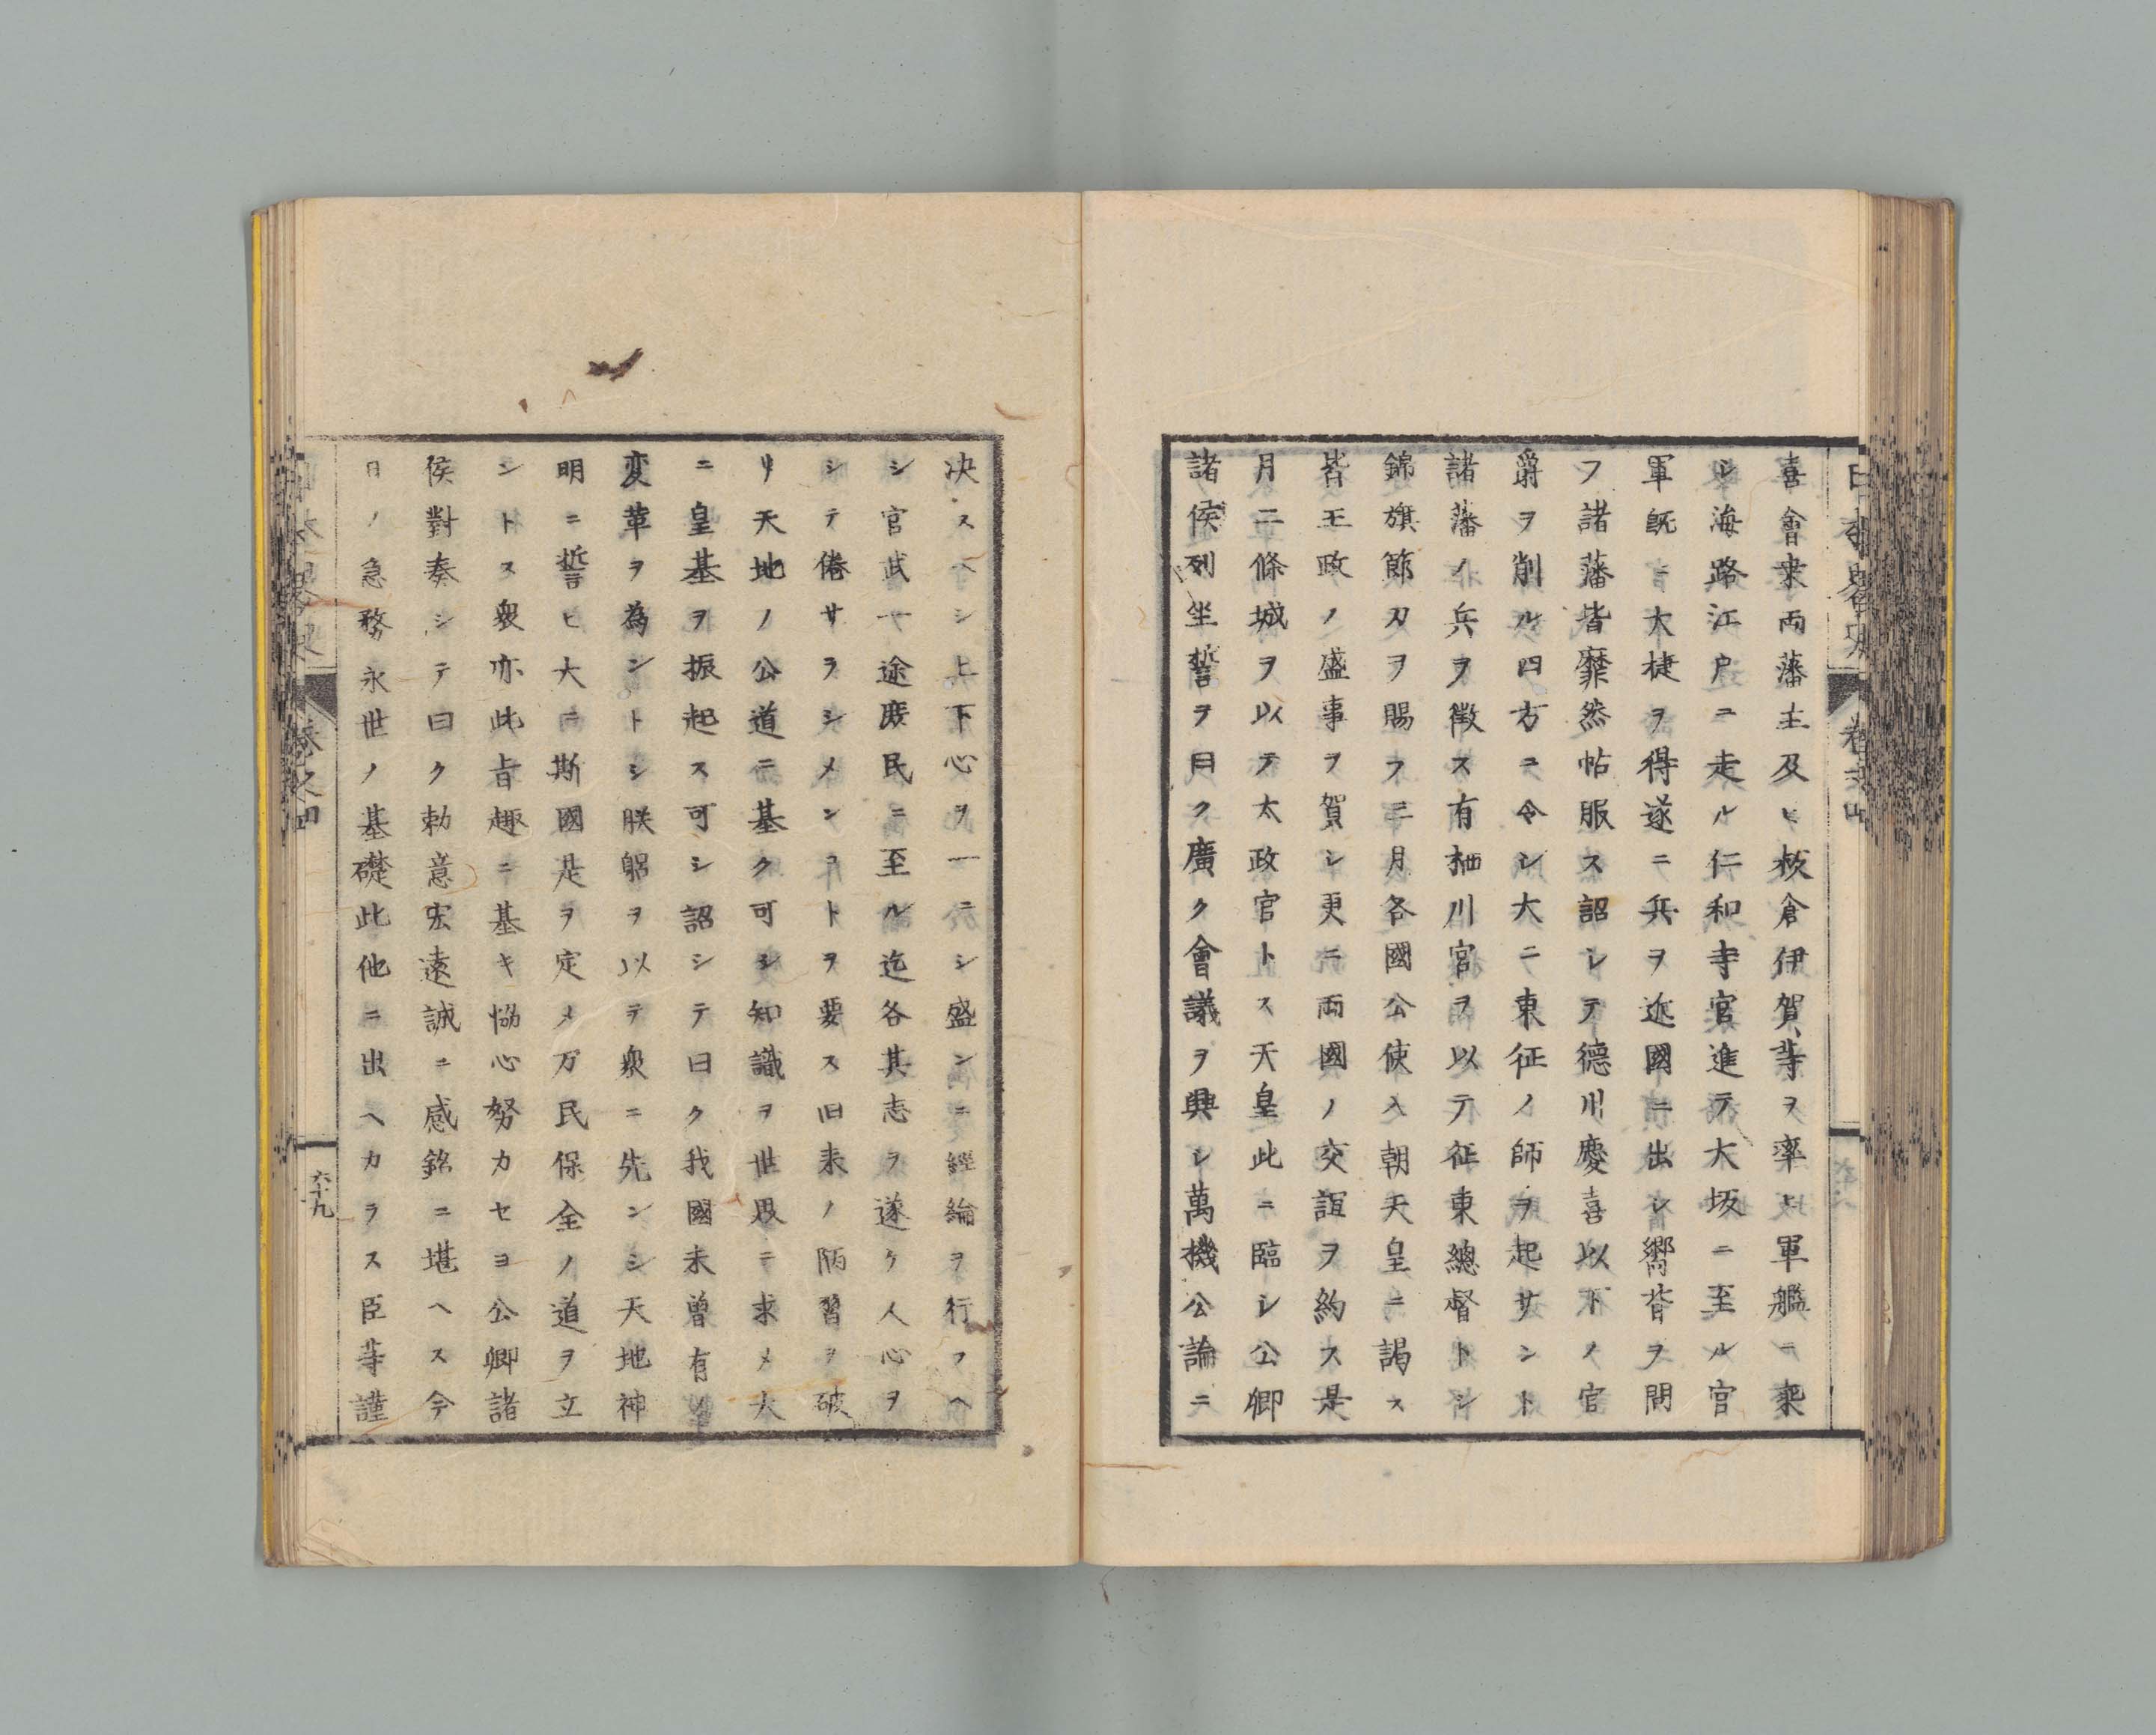 喜會桒両藩主及ヒ板倉伊賀等ヲ率ヒ軍艦ニ乘
シ海路江戸ニ走ル仁和寺宮進テ大坂ニ至ル官
軍既ニ大捷ヲ得遂ニ兵ヲ近國ニ出シ嚮背ヲ問
フ諸藩皆靡然帖服ス詔シテ德川慶喜以下ノ官
爵ヲ削ル四方ニ令シ大ニ東征ノ師ヲ起サント
諸藩ノ兵ヲ徵ス有栖川宮ヲ以テ征東總督トシ
錦旗節刀ヲ賜フ三月各國公使入朝天皇ニ謁ス
皆王政ノ盛事ヲ賀シ更ニ両國ノ交誼ヲ約ス是
月二條城ヲ以テ太政官トス天皇此ニ臨シ公卿
諸侯列坐誓ヲ曰ク廣ク會議ヲ興シ萬機公論ニ
决スヘシ上下心ヲ一ニシ盛ンニ經綸ヲ行フヘ
シ官武一途庶民ニ至ル迄各其志ヲ遂ケ人心ヲ
シテ倦サラシメンヿトヲ要ス旧来ノ陋習ヲ破
リ天地ノ公道ニ基ク可シ知識ヲ世界ニ求メ大
ニ皇基ヲ振起ス可シ詔シテ曰ク我國未曽有ノ
変革ヲ為ントシ朕躬ヲ以テ衆ニ先ンシ天地神
明ニ誓ヒ大ニ斯國是ヲ定メ万民保全ノ道ヲ立
ントス衆亦此旨趣ニ基キ恊心努力セヨ公卿諸
侯對奏シテ曰ク勅意宏遠誠ニ感銘ニ堪ヘス今
日ノ急務永世ノ基礎此他ニ出ヘカラス臣等謹
六十九